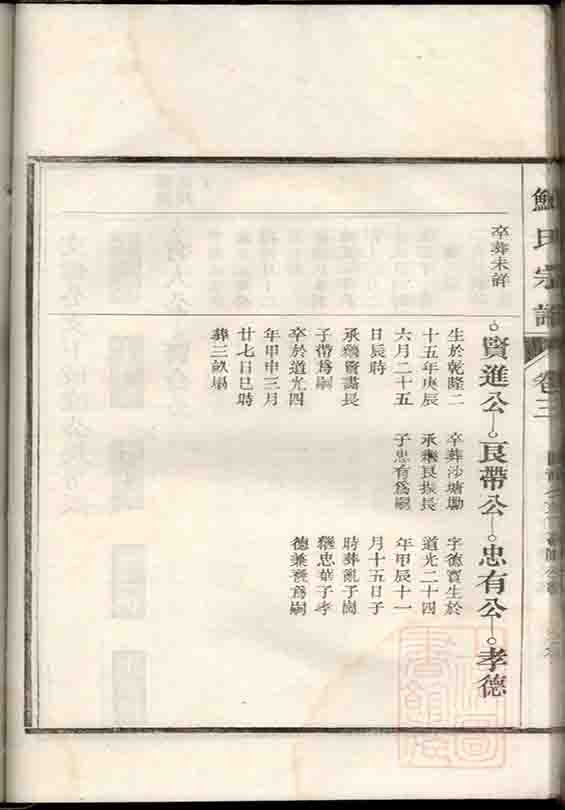 鮑氏宗譜
卷三
卒葬未詳
賢進公
生於乾隆二
十五年庚辰
六月二十五
日辰時
承繼賢謐長
子帶爲嗣
卒於道光四
年甲申三月
廿七日巳時
葬三畝塌
艮帶公
卒葬沙塘墈
承繼艮振長
子忠有爲嗣
忠有公
字德寶生於
道光二十四
年甲辰十一
月十五日子
時葬亂子崗
繼忠葉子孝
德兼祧爲嗣
孝德